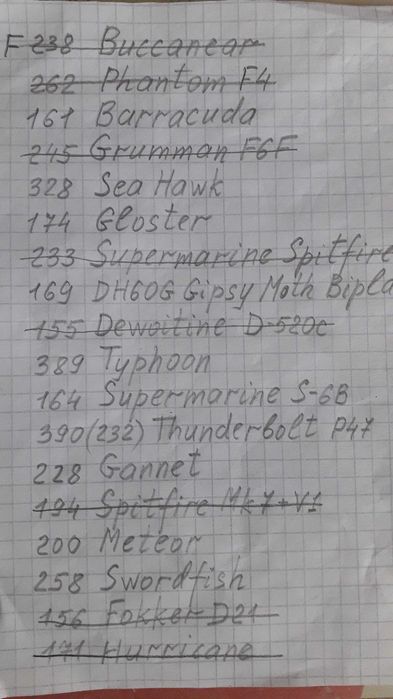 F 238 Buccanear
262 Phantom F4
161 Barracuda
245 Grumman F6F
328 Sea Hawk
174 Gloster
233 Supermarine Spitfire
169 DH60G Gipsy Moth Bipla
155 Dewoitine D-520c
389 Typhoon
164 Supermarine S-6B
390(232) Thunderbolt P47
228 Gannet
194 Spitfire Mk7+V1
200 Meteor
258 Swordfish
156 Fokker D21
171 Hurricane